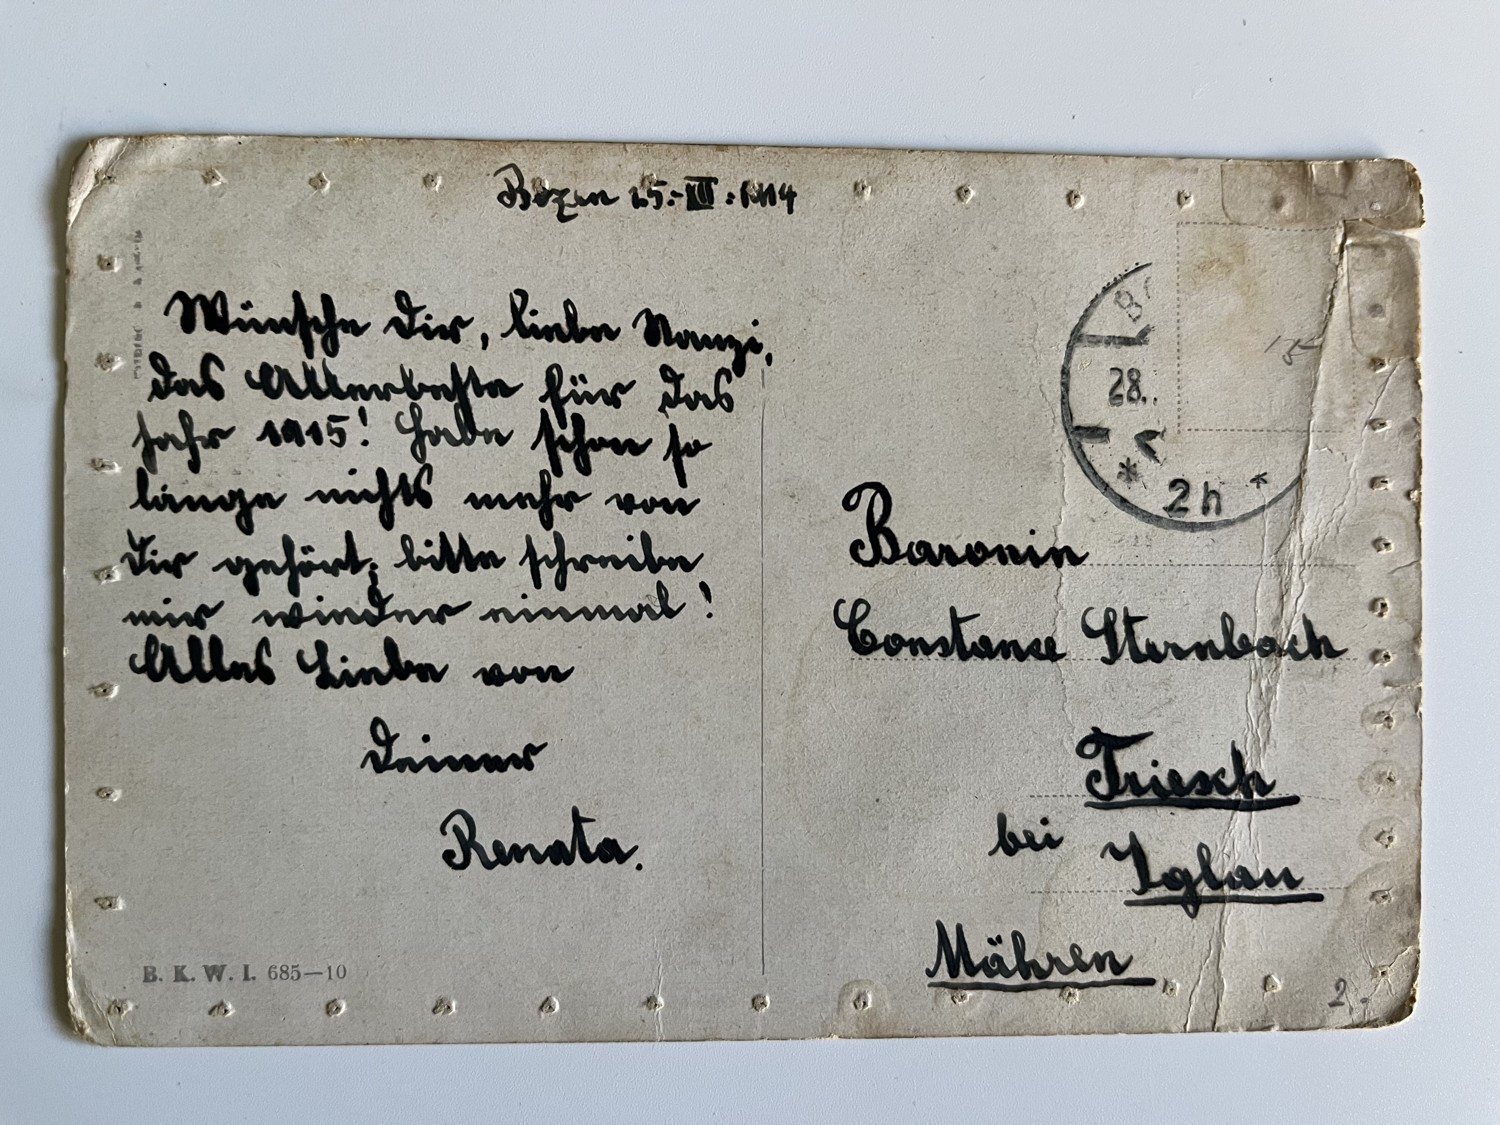 Bozen 25.-XII.1914
Wünsche Dir, liebe Nanzi,
das Allerbeste für das
Jahr 1915! Habe schon so
lange nichts mehr von
Dir gehört; bitte schreibe
mir wieder einmal!
Alles Liebe von
Deiner
Renata.
B. K. W. I. 685—10
28.
* 2h *
Baronin
Constance Sternbach
Triesch
bei Iglau
Mähren
2.